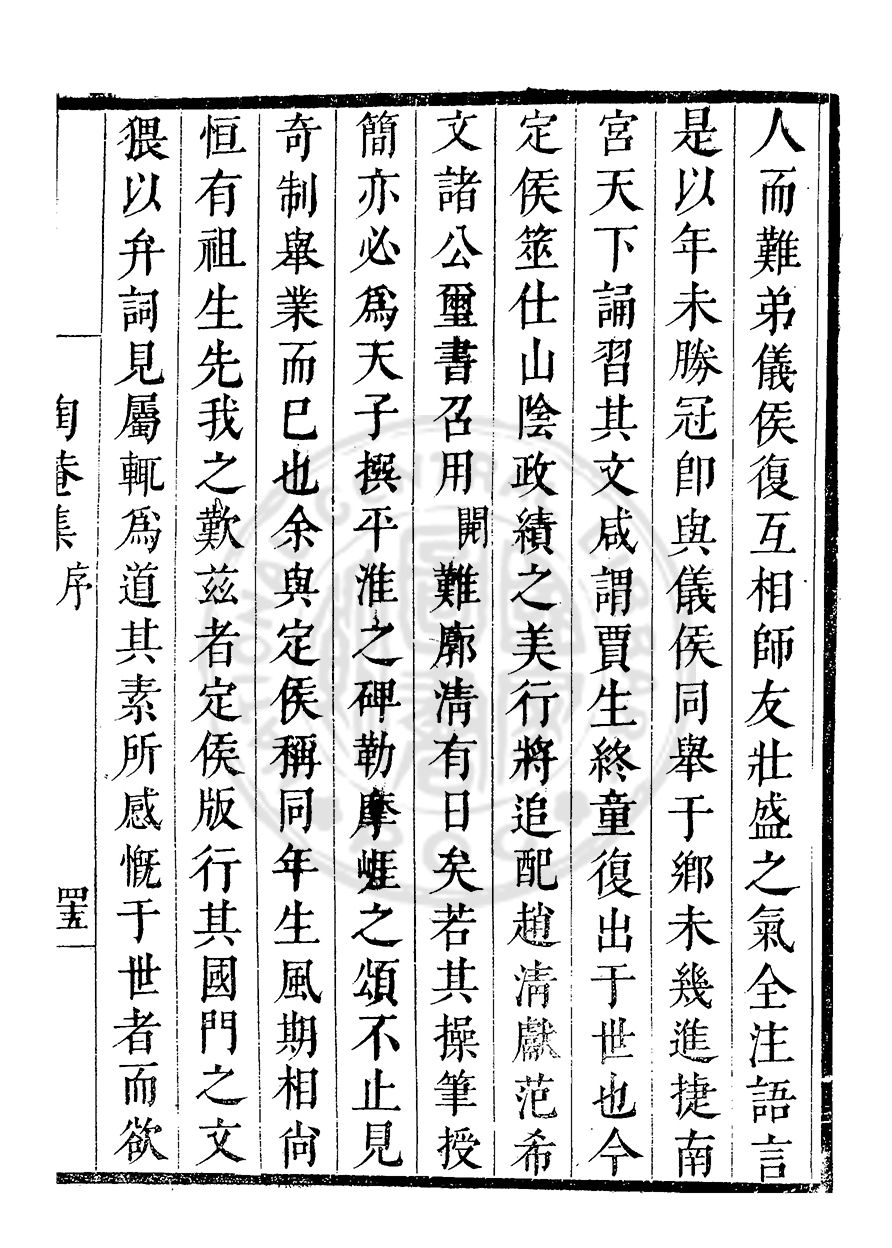 人而難弟儀侯復互相師友壯盛之氣全注語言
是以年未勝冠卽與儀侯同舉于鄉未幾進捷南
宮天下誦習其文咸謂賈生終童復出于世也今
定侯筮仕山陰政績之美行將追配趙淸獻范希
文諸公璽書召用開難廓淸有日矣若其操筆授
簡亦必爲天子撰平淮之碑勒摩崕之頌不止見
奇制舉業而已也余與定侯稱同年生風期相尙
恒有祖生先我之歎茲者定侯版行其國門之文
猥以弁詞見屬輒爲道其素所感慨于世者而欲
陶菴集 序 四五